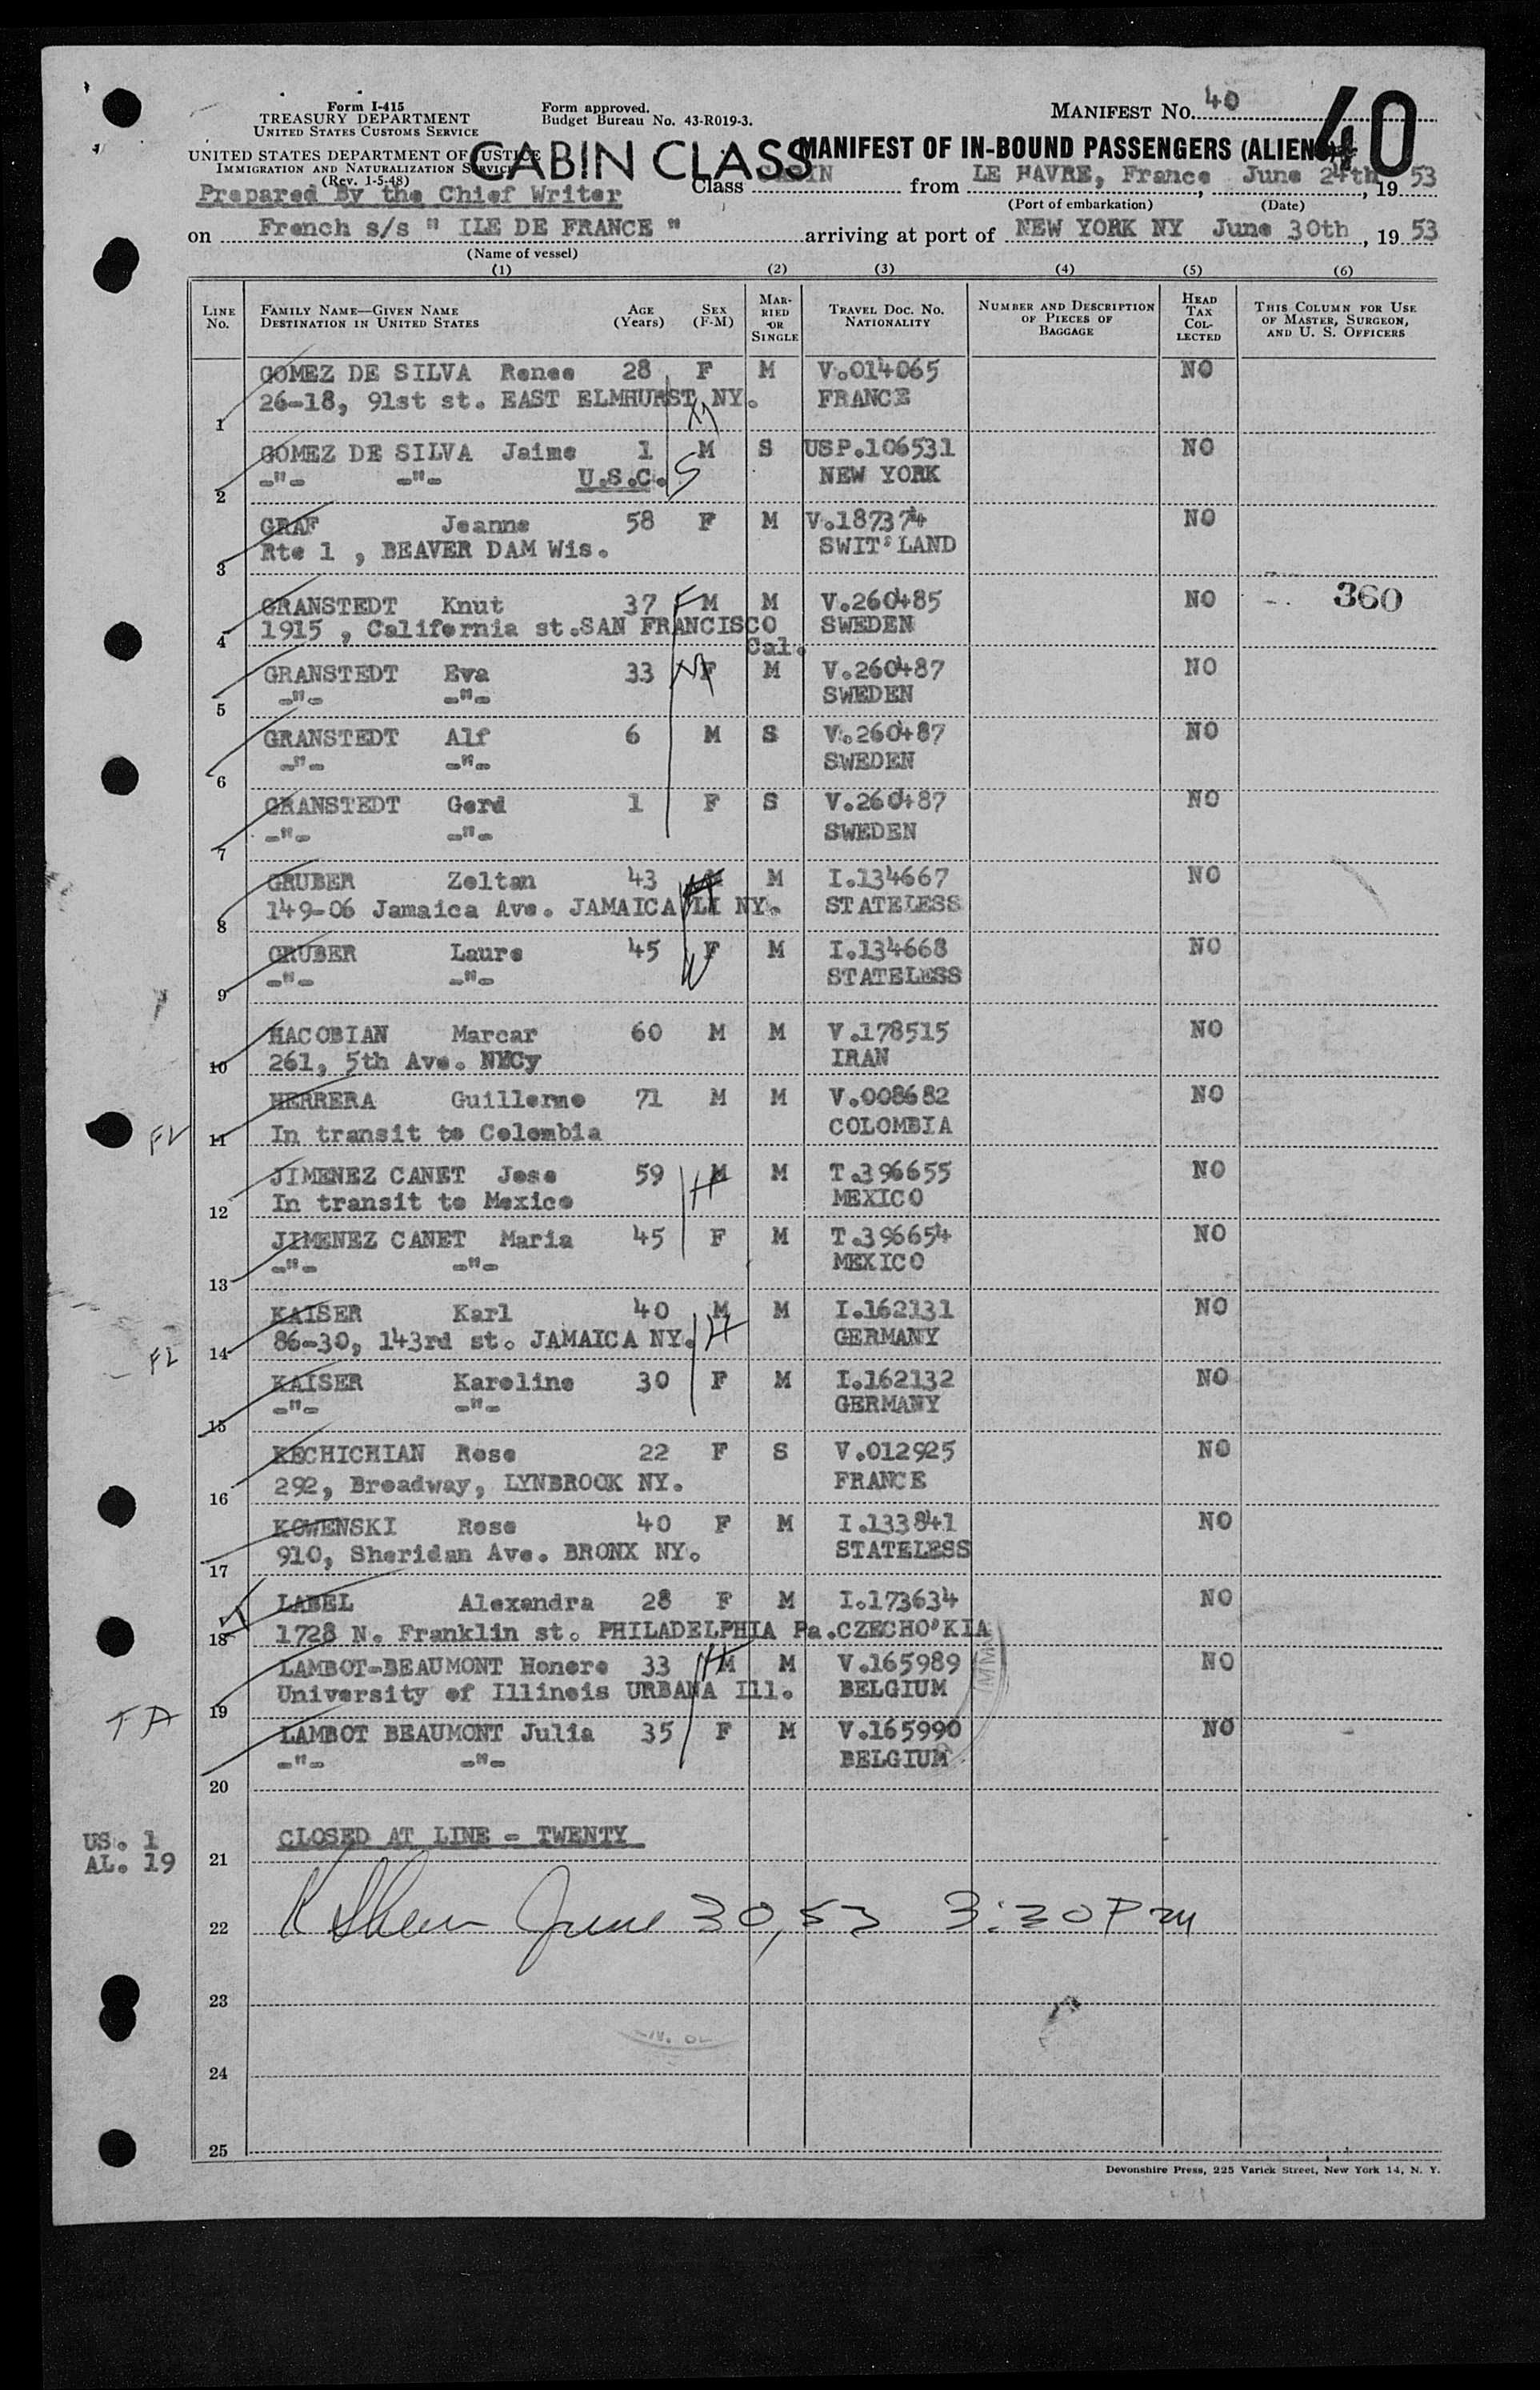 Form I-415
TREASURY DEPARTMENT
UNITED STATES CUSTOMS SERVICE
UNITED STATES DEPARTMENT OF JUSTICE
IMMIGRATION AND NATURALIZATION SERVICE
(Rev. 1-5-48)
Form approved.
Budget Bureau No. 43-R019-3.
MANIFEST No. 40
40
CABIN CLASS
MANIFEST OF IN-BOUND PASSENGERS (ALIENS)
Prepared By the Chief Writer
Class CABIN from LE HAVRE, France, June 24th, 19 53
(Port of embarkation) (Date)
on French s/s " ILE DE FRANCE " arriving at port of NEW YORK NY June 30th, 19 53
(Name of vessel)
(1) (2) (3) (4) (5) (6)
LINE No. FAMILY NAME—GIVEN NAME DESTINATION IN UNITED STATES AGE (Years) SEX (F-M) MARRIED OR SINGLE TRAVEL DOC. No. NATIONALITY NUMBER AND DESCRIPTION OF PIECES OF BAGGAGE HEAD TAX COLLECTED THIS COLUMN FOR USE OF MASTER, SURGEON, AND U. S. OFFICERS
GOMEZ DE SILVA Renee 28 F M V.014065 NO
1 26-18, 91st st. EAST ELMHURST NY. FRANCE
GOMEZ DE SILVA Jaime 1 M S USP.106531 NO
2 -"- -"- U.S.C. NEW YORK
GRAF Jeanne 58 F M V.187374 NO
3 Rte 1 , BEAVER DAM Wis. SWIT'LAND
GRANSTEDT Knut 37 M M V.260485 NO 360
4 1915 , California st.SAN FRANCISCO Cal. SWEDEN
GRANSTEDT Eva 33 F M V.260487 NO
5 -"- -"- SWEDEN
GRANSTEDT Alf 6 M S V.260487 NO
6 -"- -"- SWEDEN
GRANSTEDT Gerd 1 F S V.260487 NO
7 -"- -"- SWEDEN
GRUBER Zoltan 43 M M I.134667 NO
8 149-06 Jamaica Ave. JAMAICA LI NY. STATELESS
GRUBER Laure 45 F M I.134668 NO
9 -"- -"- STATELESS
HACOBIAN Marcar 60 M M V.178515 NO
10 261, 5th Ave. NYCy IRAN
HERRERA Guillermo 71 M M V.008682 NO
11 In transit to Colombia COLOMBIA
JIMENEZ CANET Jose 59 M M T.396655 NO
12 In transit to Mexico MEXICO
JIMENEZ CANET Maria 45 F M T.396654 NO
13 -"- -"- MEXICO
KAISER Karl 40 M M I.162131 NO
14 86-30, 143rd st. JAMAICA NY. GERMANY
KAISER Karoline 30 F M I.162132 NO
15 -"- -"- GERMANY
KECHICHIAN Rose 22 F S V.012925 NO
16 292, Broadway, LYNBROOK NY. FRANCE
KOWENSKI Rose 40 F M I.133841 NO
17 910, Sheridan Ave. BRONX NY. STATELESS
LABEL Alexandra 28 F M I.173634 NO
18 1728 N. Franklin st. PHILADELPHIA Pa. CZECHO'KIA
LAMBOT-BEAUMONT Honore 33 M M V.165989 NO
19 University of Illinois URBANA Ill. BELGIUM
TA
LAMBOT BEAUMONT Julia 35 F M V.165990 NO
20 -"- -"- BELGIUM
US. 1
AL. 19
21 CLOSED AT LINE - TWENTY
22 June 30, 53 3:30 PM
23
24
25
Devonshire Press, 225 Varick Street, New York 14, N. Y.